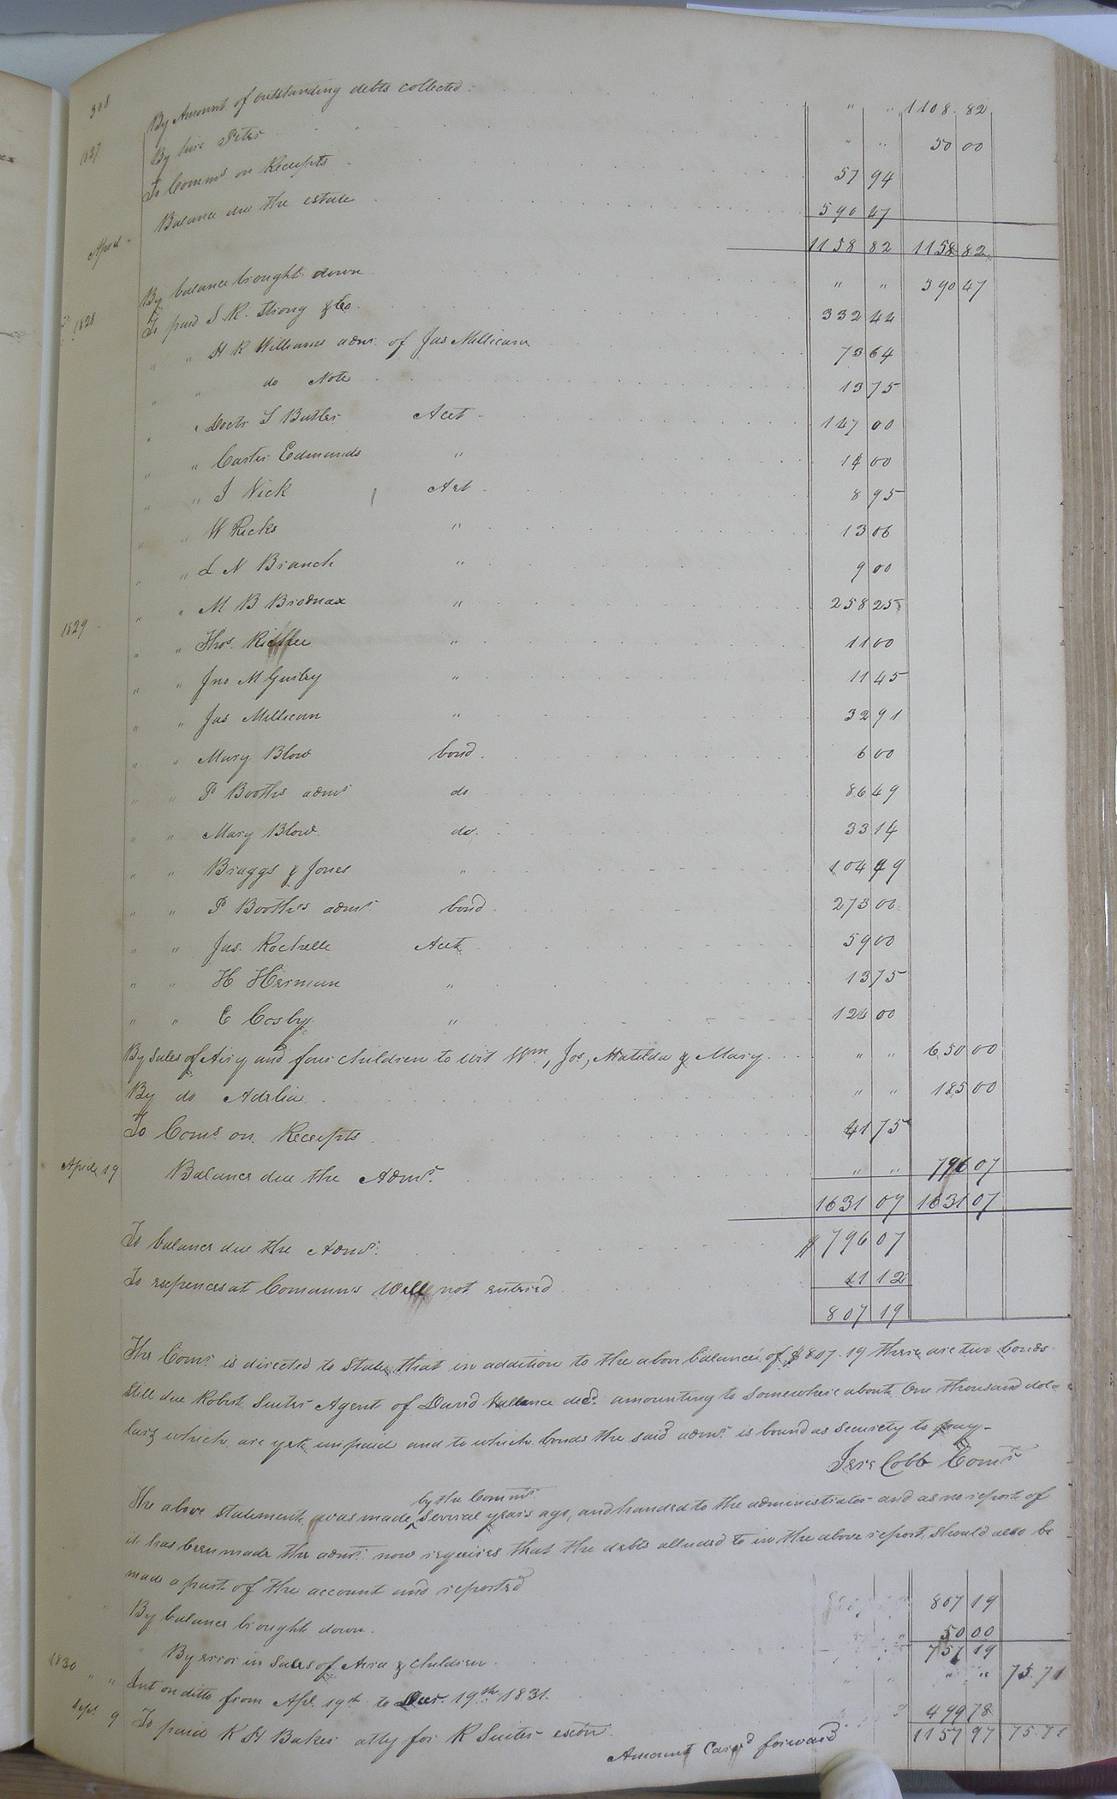 308 By Amount of outstanding debts collected " " 1108.82
1827 By hire Peter " " 50 00
To Comms on Receipts 57 94
April Balance due the estate 590 47
1158 82 1158 82
By balance brought down " " 590 47
1828 To paid S K Strong & Co 332 44
" " H R Williams adm of Jas Millican 73 64
" " do Note 13 75
" " Doctr S Butler Acct 147 00
" " Carter Edmunds " 14 00
" " J Nick Act 8 95
" " W Ricks " 13 06
" " L N Branch " 9 00
" " M B Brodnax " 258 25
1829 " " Thos " 11 00
" " Jno M Gurley " 11 45
" " Jas Millican " 32 91
" " Mary Blow bond 6 00
" " P Booths admr do 86 49
" " Mary Blow do 33 14
" " Braggs & Jones " 104 49
" " P Booths admr bond 273 00
" " Jas Rochelle Acct 59 00
" " H Herman " 13 75
" " E Cosby " 124 00
By sales of Airy and four children to wit Wm, Jos, Matilda & Mary " " 650 00
By do Adelia " " 185 00
To Coms on Receipts 41 75
April 19 Balance due the Admr " " 796 07
1631 07 1631 07
To balance due the Admr $796 07
To expences at Comanns Well not entered 11 12
807 19
The Comr is directed to state that in addition to the abov balance of $807.19 there are two bonds
still due Robert Suiter Agent of David Wallance decd amounting to somewhere about One thousand dol=
lars which are yet unpaid and to which bonds the said admr is bound as security to pay-
Jere Cobb Comr
by the Commr
The above statement was made several years ago, and handed to the administrator and as no report of
it has been made the admr now requires that the debts alluded to in the above report should also be
made a part of the account and reported
By balance brought down 807 19
By error in sales of Aira & children 50 00
757 19
1830 " " Int on ditto from Apl 19th to Decr 19th 1831. " " 75.71
Sept 9 To paid R H Baker atty for R Suiter exeon 499 78
Amount Card forward 1157 97 75.71